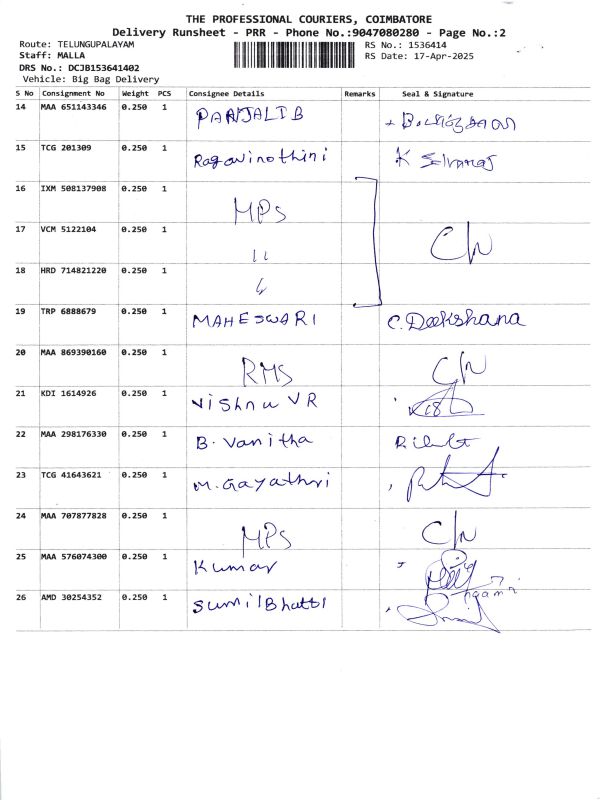 THE PROFESSIONAL COURIERS, COIMBATORE
Delivery Runsheet - PRR - Phone No.:9047080280 - Page No.:2
Route: TELUNGUPALAYAM
RS No.: 1536414
Staff: MALLA
RS Date: 17-Apr-2025
DRS No.: DCJB153641402
Vehicle: Big Bag Delivery
S No Consignment No Weight PCS Consignee Details Remarks Seal & Signature
14 MAA 651143346 0.250 1 PANJALI B
15 TCG 201309 0.250 1 Ragavinothini K Selvaraj
16 IXM 508137908 0.250 1 MPS
17 VCM 5122104 0.250 1 11 C/N
18 HRD 714821220 0.250 1
19 TRP 6888679 0.250 1 MAHESWARI C. Deekshana
20 MAA 869390160 0.250 1 RMS C/N
21 KDI 1614926 0.250 1 Vishnu VR
22 MAA 298176330 0.250 1 B. Vanitha
23 TCG 41643621 0.250 1 M. Gayathri
24 MAA 707877828 0.250 1 MPS C/N
25 MAA 576074300 0.250 1 Kumar
26 AMD 30254352 0.250 1 Sumil Bhatt